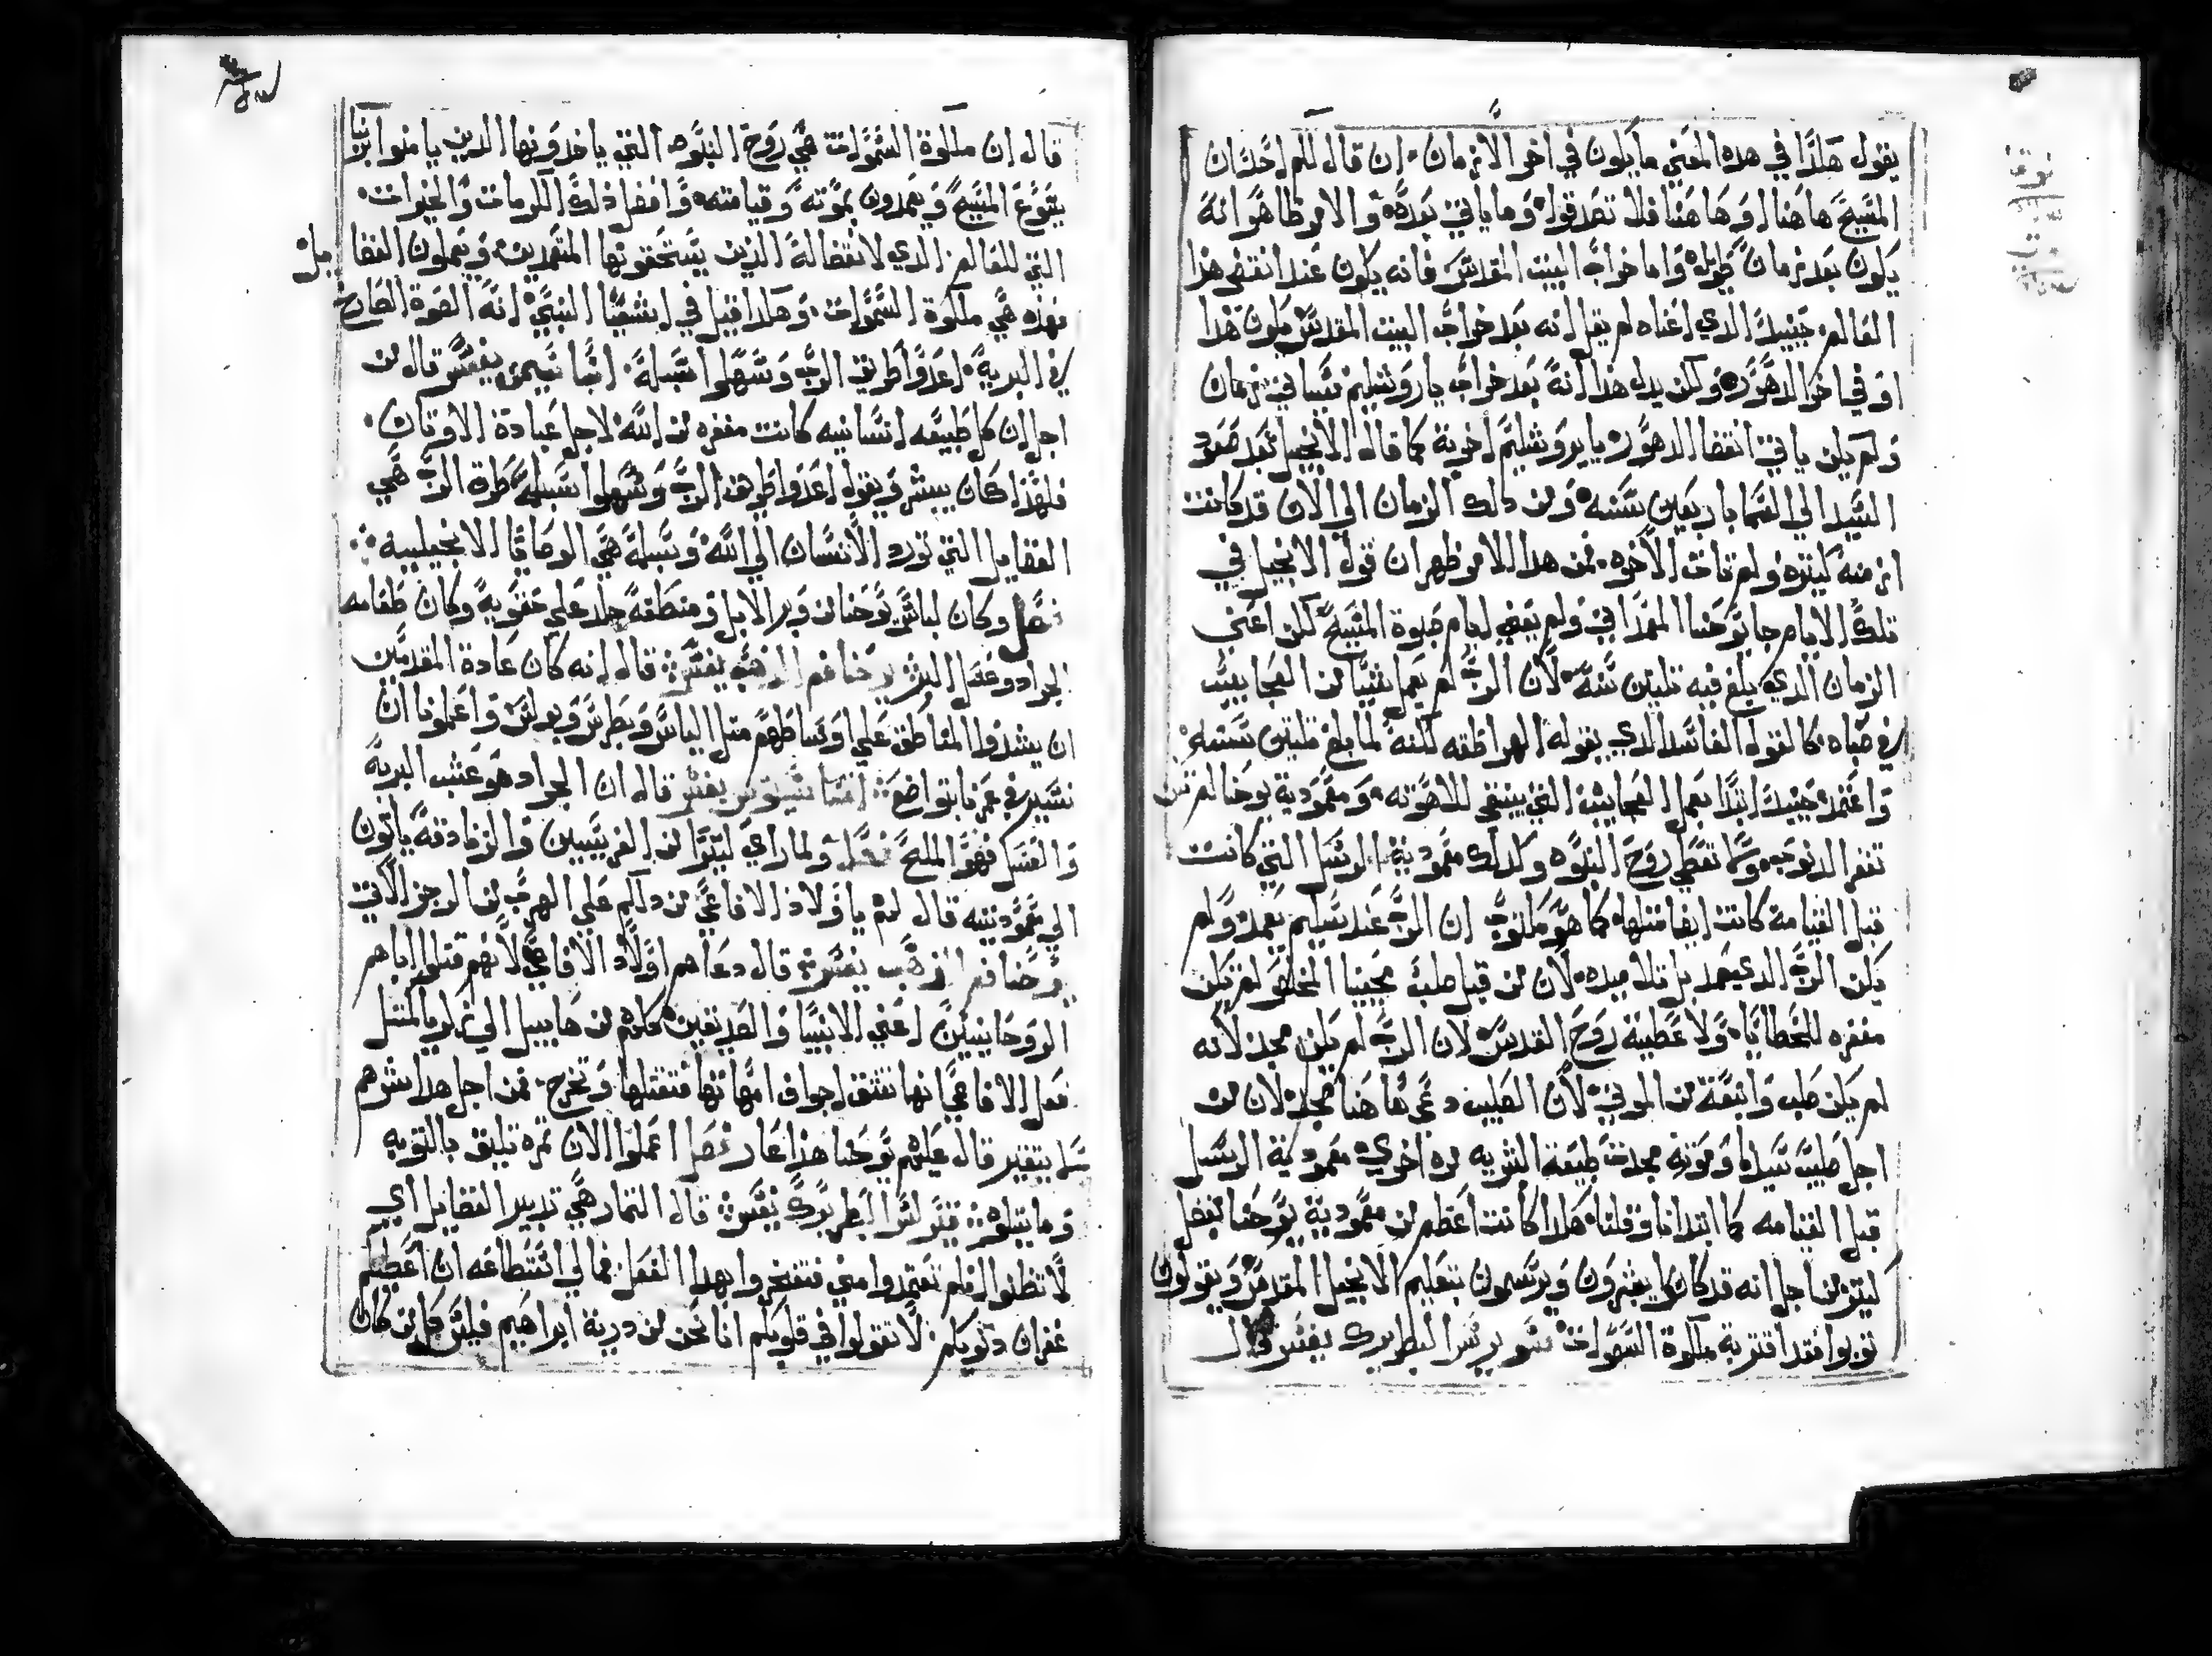 يقول هكذا في هده المعني ما يكون في اخر الازمان. ان قال لكم احد ان
المسيح هاهنا او هاهنا فلا تصدقوا. وما ياتي بعده. والامر ظاهر انه
يكون بعد زمان طويل. واما خراب البيت المقدس فانه يكون عند انقضى هذا
العالم. حينيد الدي اعناه لم يقل انه بعد خراب البيت المقدس يكون هذا
او في اخر الدهور. ولكن يدل هذا انه بعد خراب ياروشليم سياتي زمان
ولم يكن ياتي انقضا الدهور يايروشليم اخربة كما قال الانجيل بعد صعود
السيد الي السما باربعين سنه. ومن دلك الزمان الي الان قد كانت
ازمنه كتيره ولم تات الاخره. فمن هدا الامر ظهر ان قول الانجيل في
تلك الايام جا يوحنا المعمداني ولم يعني ايام صبوة المسيح لكن اعني
الزمان الدي بلغ فيه تلتين سنه. لان الرب لم يعمل شيا من العجايب
في صباه. كالقول الفاسد الدي يقوله الهراطقه لكنه لما بلغ تلتين سنه
واعتمد حينيد ابتدا بعمل العجايب التي ينبغي للاهوته. ومعمودية يوحنا لم تكن
تغفر الدنوب. ولا تعطي روح النبوه وكدلك معمودية الرسل التي كانت
قبل القيامة كانت ايضا متلها. كما هو مكتوب ان الرب عند سليم يعمد ولم
يكن الرب الدي يعمد بل تلاميده. لان من قبل صلب محيينا المخلص لم تكن
مغفره للخطايا. ولا عطية روح القدس لان الرب لم يكن مجد لانه
لم يكن صلب وانبعث من الموتي. لان الصليب دعي هاهنا مجد. لان من
اجل صليب سيدنا وموته مجدت طبيعة البشريه مره اخري. معمودية الرسل
قبل القيامه كما ابتدانا وقلنا. هكدا كانت اعظم من معمودية يوحنا بفضل
كتير من اجل انه قد كانوا يبشرون ويرسمون بتعليم الانجيل المقدس ويقولون
توبوا فقد اقتربة ملكوة السموات سويرس البطريرك يفسر قال
قال ان ملكوة السموات هي روح النبوه التي ياخدونها الدين يامنوا بربنا
يسوع المسيح ويعمدون بموته وقيامته. وافضل ذلك الكرمات والخيرات.
التي للعالم الدي لا انقضا له الدين يستحقونها المتعمدين. ويعملون الفضايل
فهده هي ملكوة السموات. وهكدا قيل في اشعيا النبي انه الصوة الصارخ
في البرية. اعدوا طريق الرب وسهلوا سبله. يفسر قال من
اجل ان كل طبيعه انسانيه كانت مقفره من الله لاجل عبادة الاوتان.
فلهذا كان يبشر ويقول اعدوا طريق الرب وسهلوا سبله. طرق الرب هي
الفضايل التي تورد الانسان الي الله. وسبله هي الوصايا الانجيليه
فصل وكان لباس يوحنا من وبر الابل ومنطقه جلد علي حقويه وكان طعامه
الجراد وعسل البر يوحنا فم الدهب يفسر قال انه كان عادة القديسين
ان يشدوا المناطق علي اوساطهم متل الياس وبطرس وبولس واعلمونا ان
نسير في عمرنا بتواضع يفسر قال ان الجراد هو عشب البريه
والعسل فهو الملح فصل ولما راي كتيرا من الفريسيين والزنادقه ياتون
الي معموديته قال لهم يا اولاد الافاعي من دلكم علي الهرب من الرجز الاتي
يوحنا فم الدهب يفسر قال دعاهم اولاد الافاعي لانهم قتلوا اباهم
الروحانيين اعني الانبيا والصديقين كلهم من هابيل الي زكريا المتل
فعل الافاعي انها تشق اجواف امهاتها فتقتلها وتخرج. فمن اجل هدا
قال عليهم يوحنا هذا فصل اعملوا الان تمره تليق بالتوبه
وما يتلوه البطريرك يفسر قال التمار هي تدبير الفضايل اي
لا تظنوا انكم تعتمدوا مني فتفتخروا بهدا الفعل فما لي استطاعه ان اعطيكم
غفران دنوبكم. لا تقولوا في قلوبكم انا نحن من درية ابراهيم فليس كل من كان